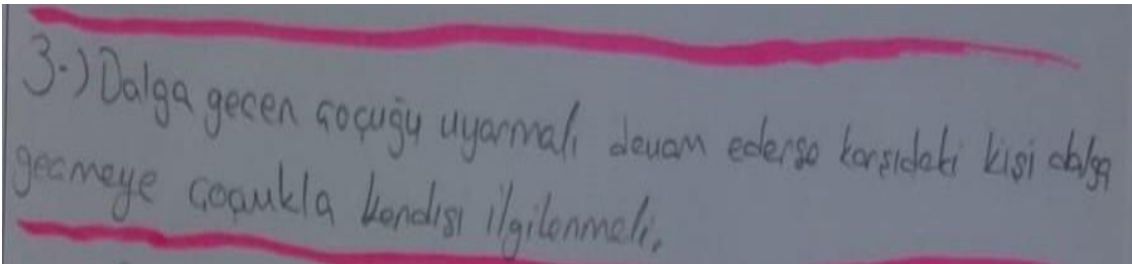 3-) Dalga geçen çoçuğu uyarmalı devam ederse karşıdaki kişi dalga
geçmeye çoçukla kendisi ilgilenmeli.